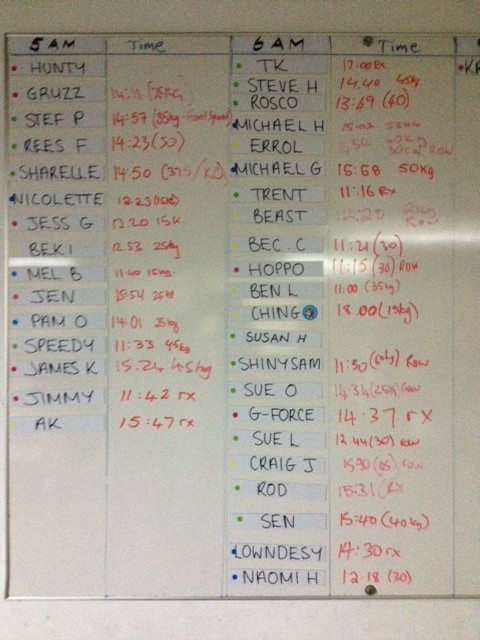 5 AM Time
HUNTY
GRUZZ 14:11 (35kg)
STEF P 14:57 (35kg - Front Squat)
REES F 14:23 (50)
SHARELLE 14:50
NICOLETTE 12.23 (15kg)
JESS G 12.20 15K
BEK I 12.53 25kg
MEL B 11:40 15kg
JEN 15:54 25kg
PAM O 14:01 25kg
SPEEDY 11:33 45kg
JAMES K 15.24 45kg
JIMMY 11:42 rx
AK 15:47 rx
6 AM Time
TK 17:00 Rx
STEVE H 14.40 45kg
ROSCO 13:49 (40)
MICHAEL H 15:02
ERROL
MICHAEL G 15:58 50kg
TRENT 11:16 Rx
BEAST 12:20 Row
BEC. C 11:21 (30)
HOPPO 11:15 (30) ROW
BEN L 11:00 (35kg)
CHING 18.00 (15kg)
SUSAN H
SHINYSAM 11:50 Row
SUE O 14:34 (25kg) Row
G-FORCE 14:37 rx
SUE L 12.44 (30) row
CRAIG J row
ROD 15:31 (Rx
SEN 15:40 (40kg)
LOWNDESY 14:30 rx
NAOMI H 12.18 (30)